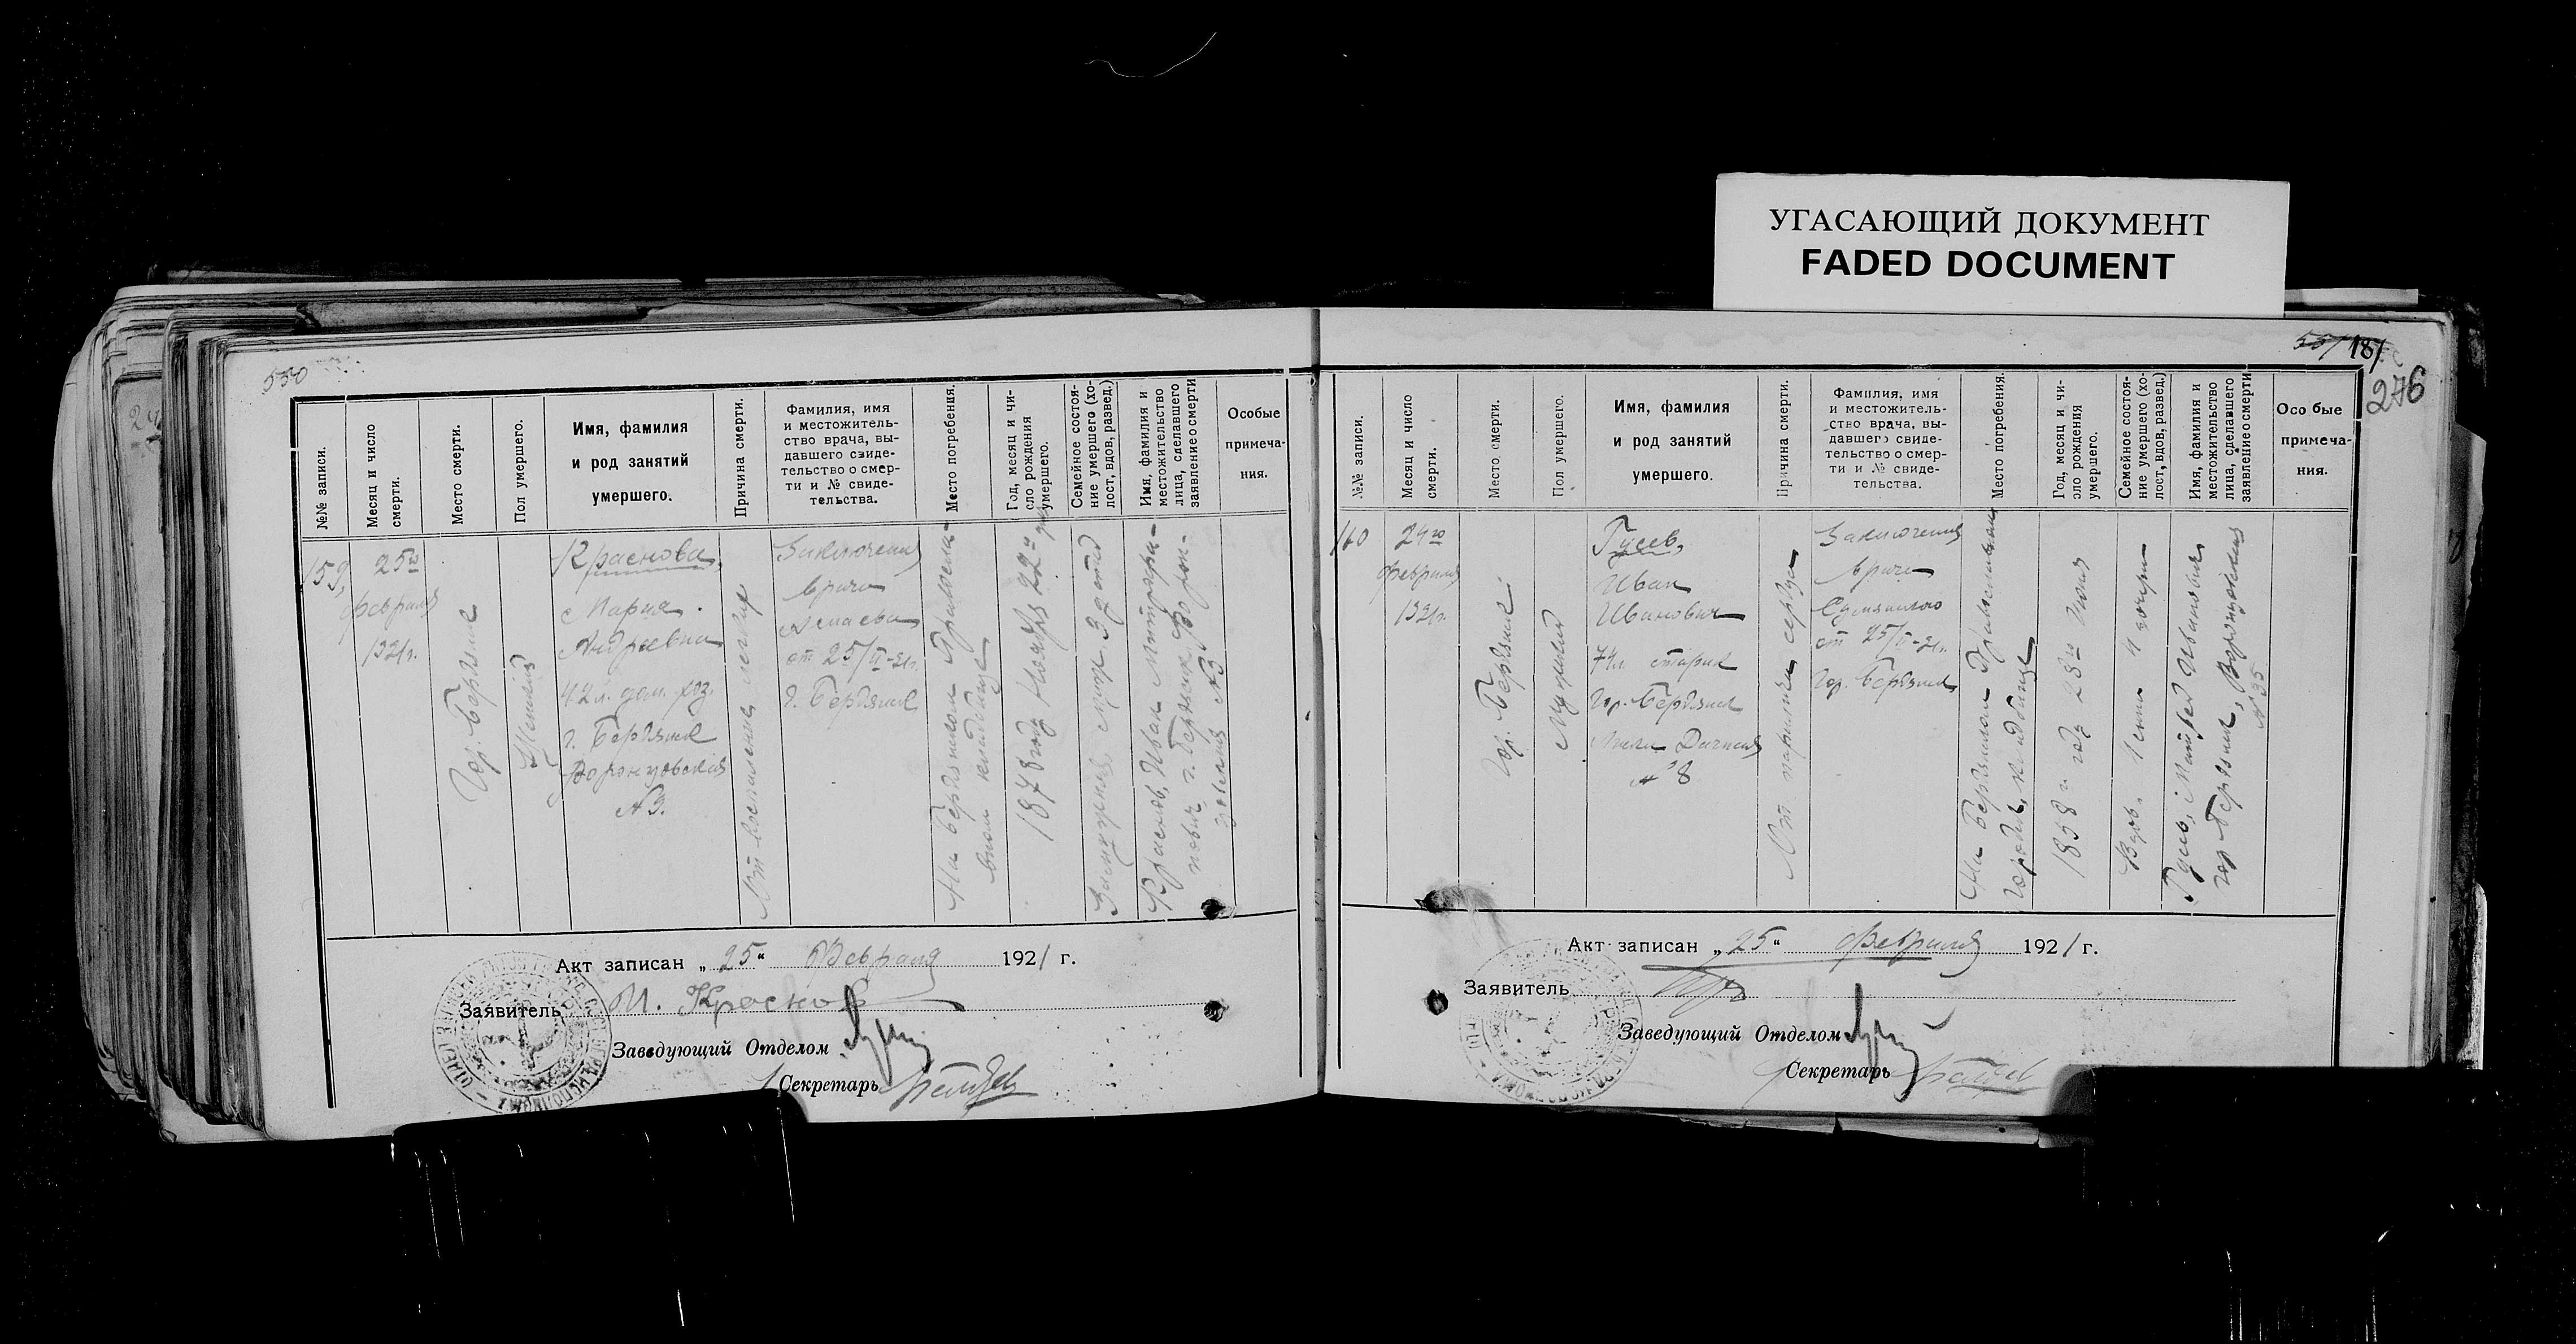 УГАСАЮЩИЙ ДОКУМЕНТ
FADED DOCUMENT
550
№№ записи.
Месяц и число
смерти.
Место смерти.
Пол умершего.
Имя, фамилия
и род занятий
умершего.
Причина смерти.
Фамилия, имя
и местожитель-
ство врача, вы-
давшего свиде-
тельство о смер-
ти и № свиде-
тельства.
Место погребения.
Год, месяц и чи-
сло рождения
умершего.
Семейное состоя-
ние умершего (хо-
лост, вдов, развед.)
Имя, фамилия и
местожительство
лица, сделавшего
заявление о смерти
Особые
примеча-
ния.
159
25го
февраля
1921г.
Гор. Бердянск
Женский
Краснова,
Мария
Андреевна
42 л. дом. хоз.
г. Бердянск
Воронцовская
№ 3.
От воспаления легких
Заключение
врача
от 25/II-21г.
г. Бердянск
На Бердянском
кладбище
1878 году Ноября 22го дня
Замужняя 3 детей
Краснов, Иван Митрофа-
нович г. Бердянск, Ворон-
цовская №3
Акт записан „25“ Февраля 1921 г.
Заявитель И. Краснов
Заведующий Отделом
Секретарь
551
181
276
№№ записи.
Месяц и число
смерти.
Место смерти.
Пол умершего.
Имя, фамилия
и род занятий
умершего.
Причина смерти.
Фамилия, имя
и местожитель-
ство врача, вы-
давшего свиде-
тельство о смер-
ти и № свиде-
тельства.
Место погребения.
Год, месяц и чи-
сло рождения
умершего.
Семейное состоя-
ние умершего (хо-
лост, вдов, развед.)
Имя, фамилия и
местожительство
лица, сделавшего
заявление о смерти
Особые
примеча-
ния.
160
24го
февраля
1921г.
Гор. Бердянск
Мужской
Гусев,
Иван
Иванович
74л. старик
Гор. Бердянск
Дачная
№ 8
От паралича сердца
Заключение
врача
от 25/II-21г.
Гор. Бердянск
На Бердянском
городск. кладбище
Июня
Вдов.
Иванович
гор. Бердянск, Воронцовская
№ 35
Акт записан „25“ февраля 1921 г.
Заявитель
Заведующий Отделом
Секретарь